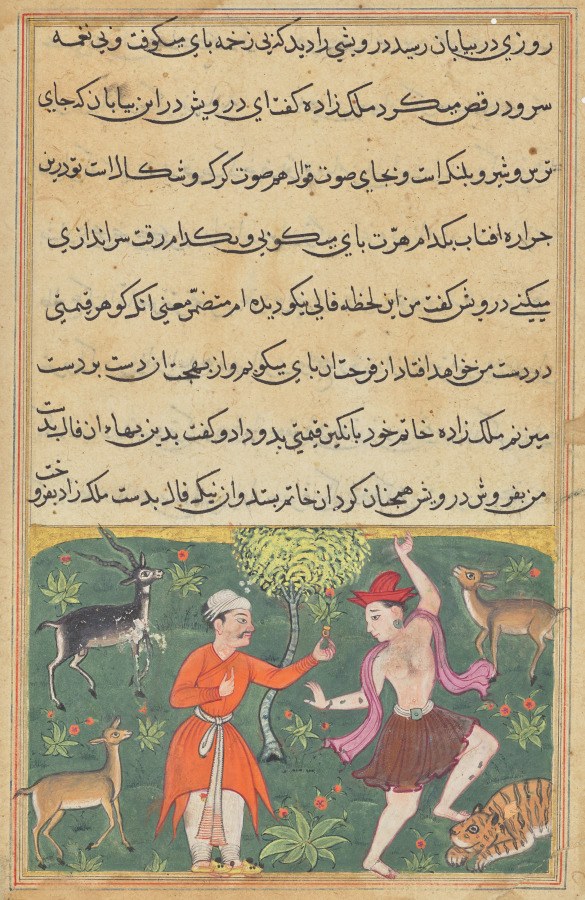 روزی در بیابان رسید درویشی را دید که بی زخمه پای میکوفت و بی نغمه
سرود رقص میکرد ملک زاده کفت ای درویش در این بیابان که جای
ترس و شیر و پلنک است و بجای صوت قوال هم صوت کرک و شکال است تو درین
حراره افتاب بکدام هرّت پای میکوبی و بکدام رقت سراندازی
میکنی درویش کفت من این لحظه فالی نیکو دیده ام متضمّن معنی انک کوهر قیمتی
در دست من خواهد افتاد از فرحت ان پای میکوبم و از بهجت ان دست بر دست
میزنم ملک زاده خاتم خود با نکین قیمتی بدو داد و کفت بدین بهاء ان فال بدست
من بفروش درویش همچنان کرد ان خاتم بستد و ان نیکو فال بدست ملک زاد بفروخت